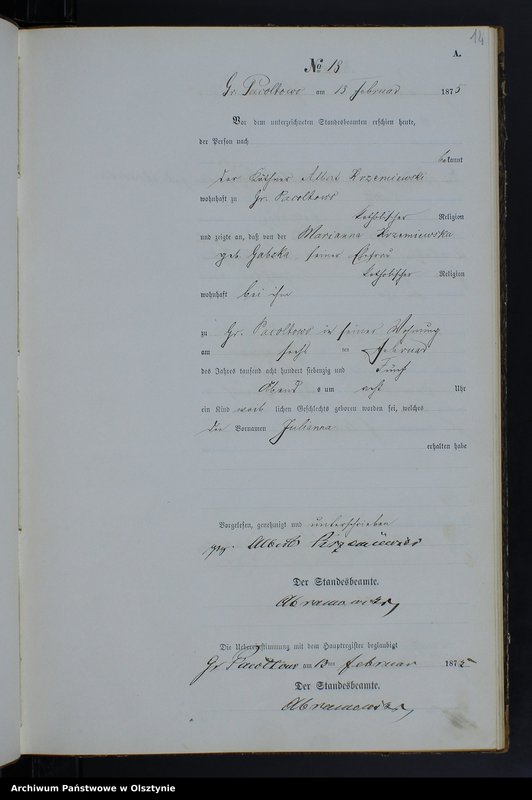 14
A.
No 13
Gr. Pacoltowo am 13 Februar 1875
Vor dem unterzeichneten Standesbeamten erschien heute,
der Person nach
bekannt
der Käthner Albert Krzemiewski
wohnhaft zu Gr. Pacoltowo
katholischer Religion
und zeigte an, daß von der Marianna Krzemiewska
geb. Gabcka seiner Ehefrau
katholischer Religion
wohnhaft bei ihm
zu Gr. Pacoltowo in seiner Wohnung
am sechs ten Februar
des Jahres tausend acht hundert siebenzig und Fünf
Abend s um acht Uhr
ein Kind weib lichen Geschlechts geboren worden sei, welches
den Vornamen Julianna
erhalten habe
Vorgelesen, genehmigt und unterschrieben
gez. Albert
Der Standesbeamte.
Abramowski
Die Uebereinstimmung mit dem Hauptregister beglaubigt
Gr. Pacoltowo am 13ten Februar 1875
Der Standesbeamte.
Abramowski
Archiwum Państwowe w Olsztynie